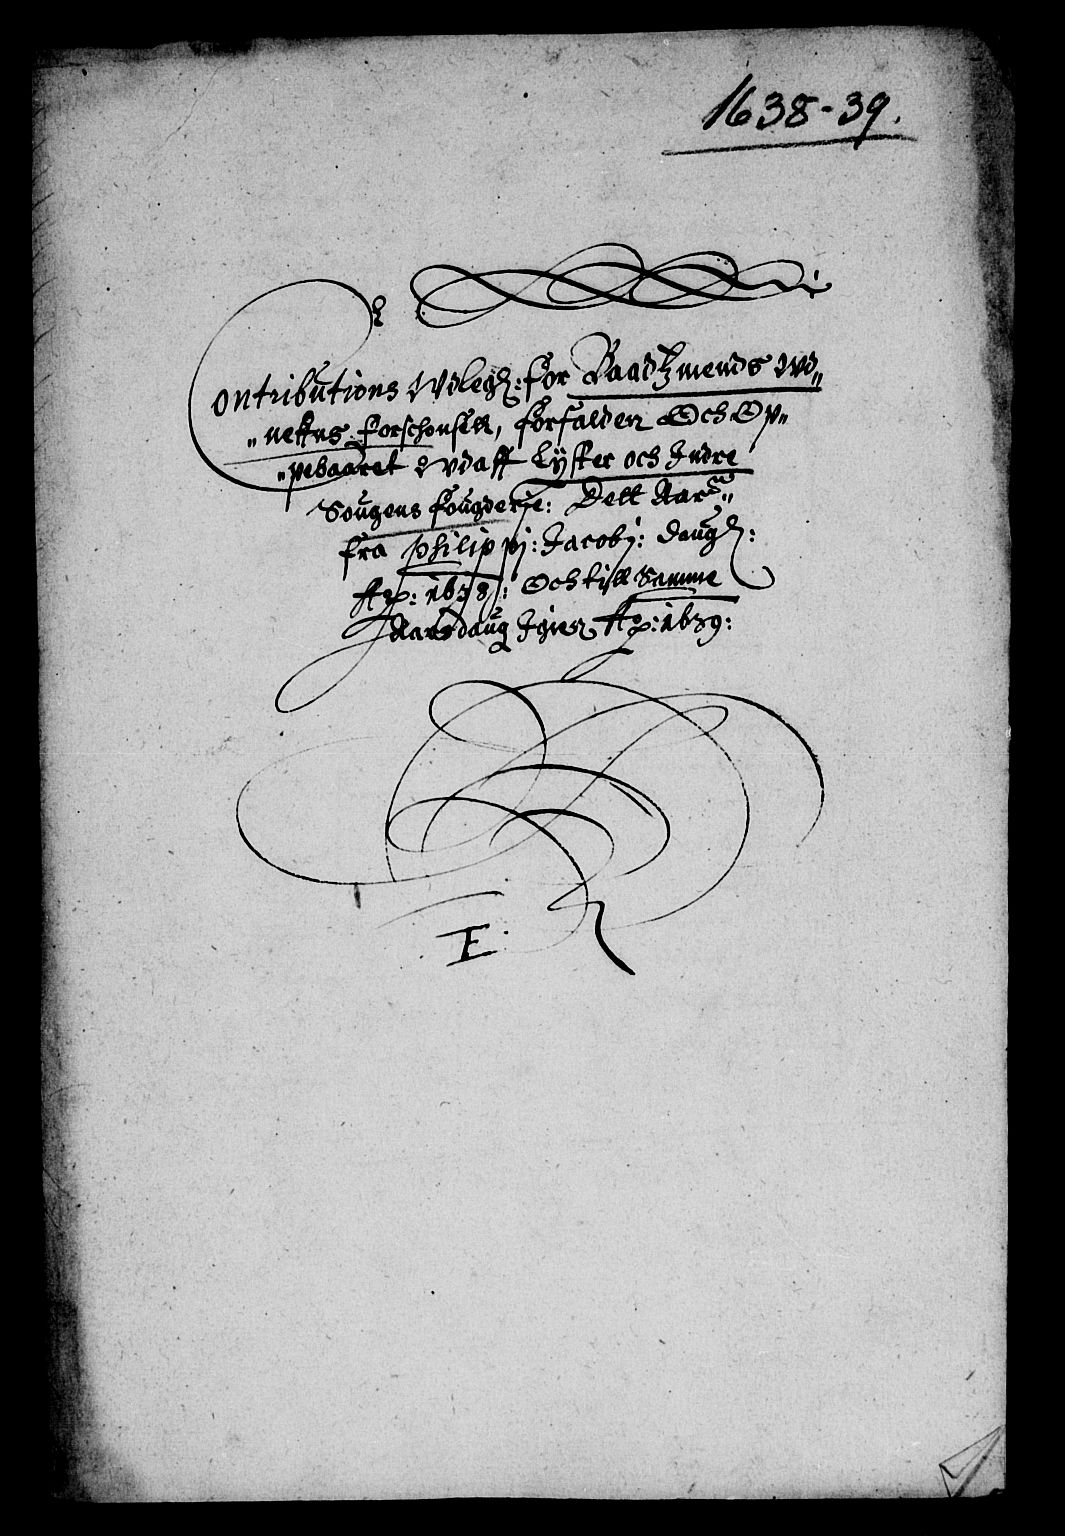 1638-39.
Contributions Wdlegh: for Baadtzmends Wd„
„nettes forschonsell, forfalden Och Op„
„pebaaret Wdaff Lyster och Indre
Sougens fougderie: Dett Aar
fra Philippi: Jacobi: daugh:
Ao: 1638: Och till Samme
Aarsdaug Igien Ao: 1639:
E: